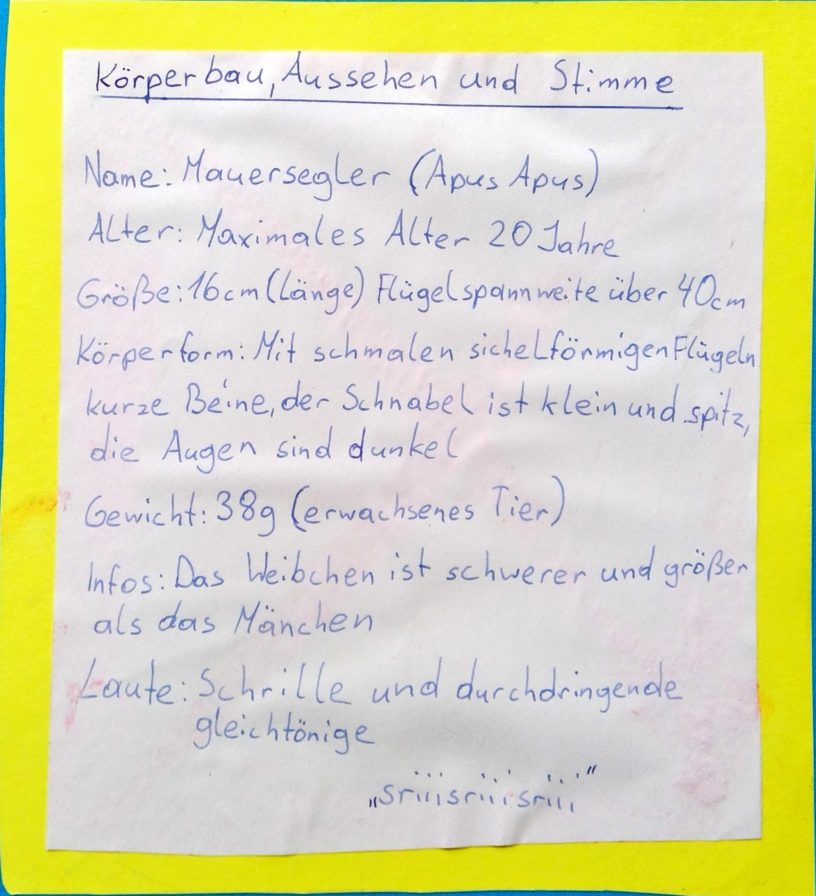 Körperbau, Aussehen und Stimme
Name: Mauersegler (Apus Apus)
Alter: Maximales Alter 20 Jahre
Größe: 16cm (Länge) Flügelspannweite über 40cm
Körperform: Mit schmalen sichelförmigen Flügeln
kurze Beine, der Schnabel ist klein und spitz,
die Augen sind dunkel
Gewicht: 38g (erwachsenes Tier)
Infos: Das Weibchen ist schwerer und größer
als das Mänchen
Laute: Schrille und durchdringende
gleichtönige
„sriiisriiisriii"